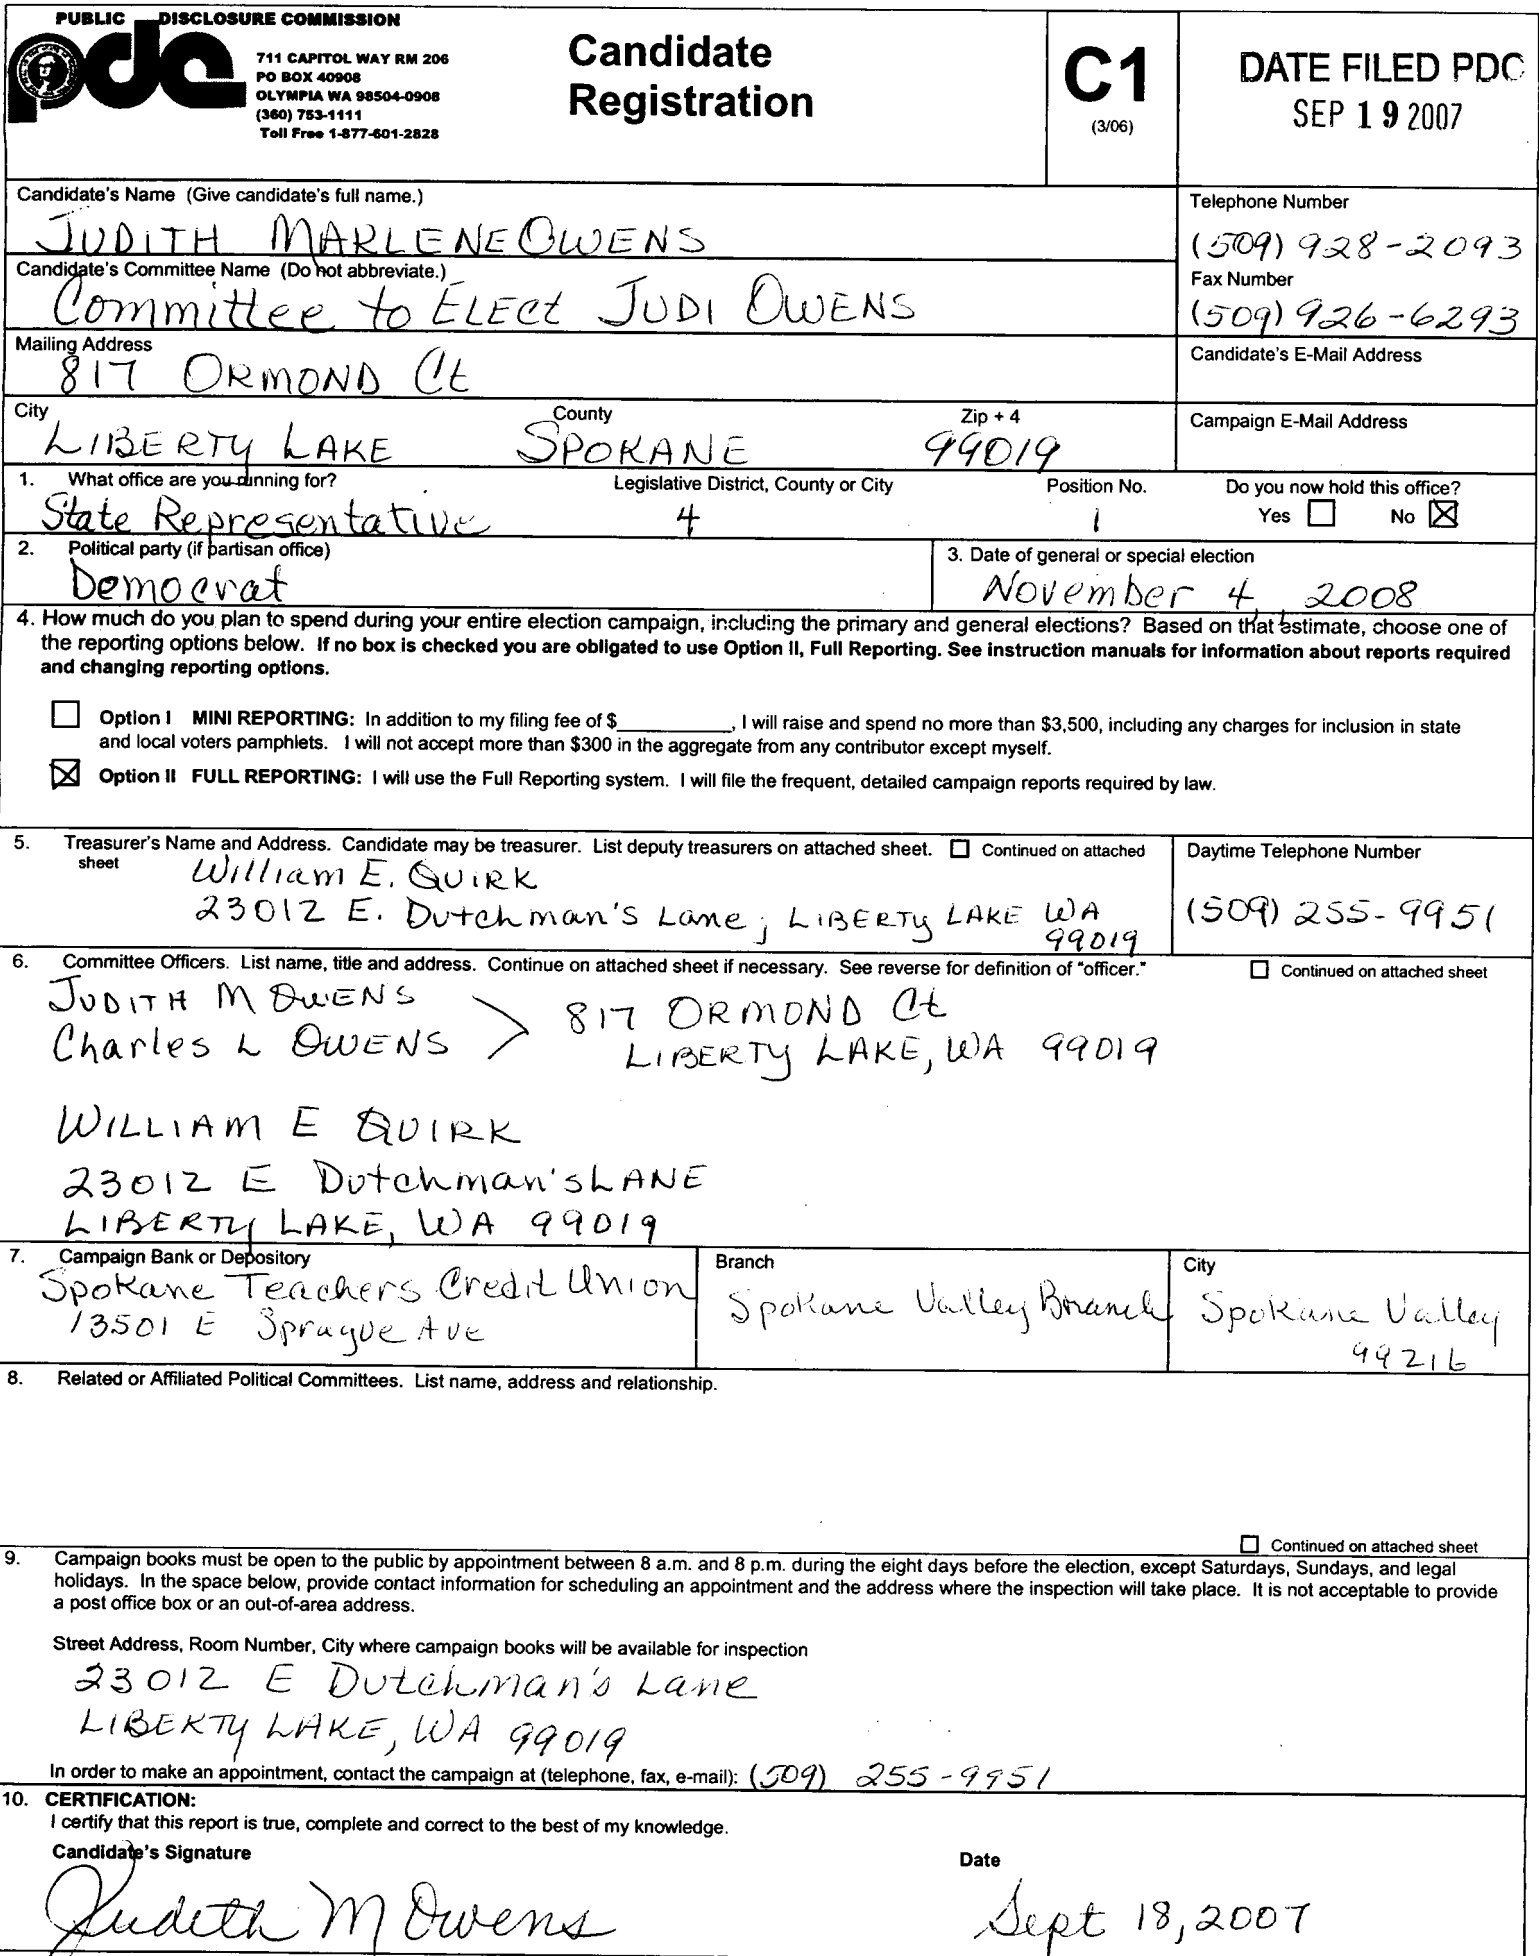 PUBLIC DISCLOSURE COMMISSION
pdc
711 CAPITOL WAY RM 206
PO BOX 40908
OLYMPIA WA 98504-0908
(360) 753-1111
Toll Free 1-877-601-2828
Candidate
Registration
C1
(3/06)
DATE FILED PDC
SEP 19 2007
Candidate's Name (Give candidate's full name.)
JUDITH MARLENE OWENS
Telephone Number
(509) 928-2093
Candidate's Committee Name (Do not abbreviate.)
Committee to ELECt JUDI OWENS
Fax Number
(509) 926-6293
Mailing Address
817 ORMOND Ct
Candidate's E-Mail Address
City County Zip + 4
LIBERTY LAKE SPOKANE 99019
Campaign E-Mail Address
1. What office are you running for? Legislative District, County or City Position No. Do you now hold this office?
State Representative 4 1 Yes No
2. Political party (if partisan office)
Democrat
3. Date of general or special election
November 4, 2008
4. How much do you plan to spend during your entire election campaign, including the primary and general elections? Based on that estimate, choose one of
the reporting options below. If no box is checked you are obligated to use Option II, Full Reporting. See instruction manuals for information about reports required
and changing reporting options.
Option I MINI REPORTING: In addition to my filing fee of $__________, I will raise and spend no more than $3,500, including any charges for inclusion in state
and local voters pamphlets. I will not accept more than $300 in the aggregate from any contributor except myself.
Option II FULL REPORTING: I will use the Full Reporting system. I will file the frequent, detailed campaign reports required by law.
5. Treasurer's Name and Address. Candidate may be treasurer. List deputy treasurers on attached sheet. Continued on attached
sheet
William E. QUIRK
23012 E. Dutchman's Lane; LIBERTY LAKE WA
99019
Daytime Telephone Number
(509) 255-9951
6. Committee Officers. List name, title and address. Continue on attached sheet if necessary. See reverse for definition of "officer." Continued on attached sheet
JUDITH M OWENS
Charles L OWENS > 817 ORMOND Ct
LIBERTY LAKE, WA 99019
WILLIAM E QUIRK
23012 E Dutchman's LANE
LIBERTY LAKE, WA 99019
7. Campaign Bank or Depository
Spokane Teachers Credit Union
13501 E Sprague Ave
Branch
Spokane Valley Branch
City
Spokane Valley
99216
8. Related or Affiliated Political Committees. List name, address and relationship.
Continued on attached sheet
9. Campaign books must be open to the public by appointment between 8 a.m. and 8 p.m. during the eight days before the election, except Saturdays, Sundays, and legal
holidays. In the space below, provide contact information for scheduling an appointment and the address where the inspection will take place. It is not acceptable to provide
a post office box or an out-of-area address.
Street Address, Room Number, City where campaign books will be available for inspection
23012 E Dutchman's Lane
LIBERTY LAKE, WA 99019
In order to make an appointment, contact the campaign at (telephone, fax, e-mail): (509) 255-9951
10. CERTIFICATION:
I certify that this report is true, complete and correct to the best of my knowledge.
Candidate's Signature
Judith M Owens
Date
Sept 18, 2007